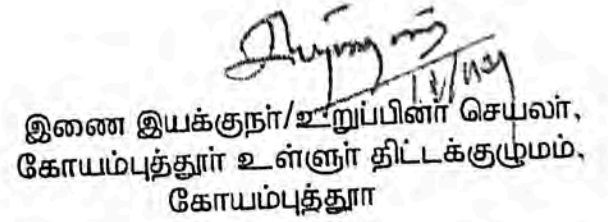 இணை இயக்குநர்/உறுப்பினர் செயலர்,
கோயம்புத்தூர் உள்ளுர் திட்டக்குழுமம்,
கோயம்புத்தூர